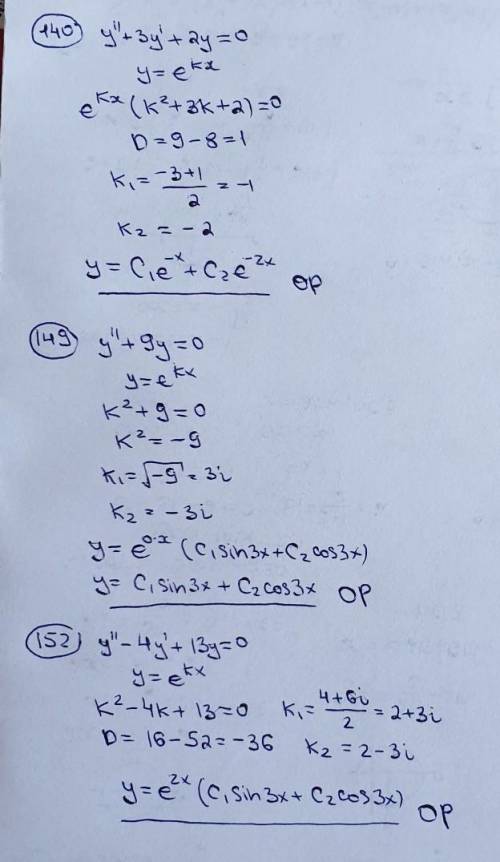 140 y''+3y'+2y=0
y=e^{kx}
e^{kx}(k²+3k+2)=0
D=9-8=1
k₁=\frac{-3+1}{2}=-1
k₂=-2
y=C₁e^{-x}+C₂e^{-2x} OP
149 y''+9y=0
y=e^{kx}
k²+9=0
k²=-9
k₁=√-9=3i
k₂=-3i
y=e^{0·x}(C₁sin3x+C₂cos3x)
y=C₁sin3x+C₂cos3x OP
152 y''-4y'+13y=0
y=e^{kx}
k²-4k+13=0 k₁=\frac{4+6i}{2}=2+3i
D=16-52=-36 k₂=2-3i
y=e^{2x}(C₁sin3x+C₂cos3x) OP